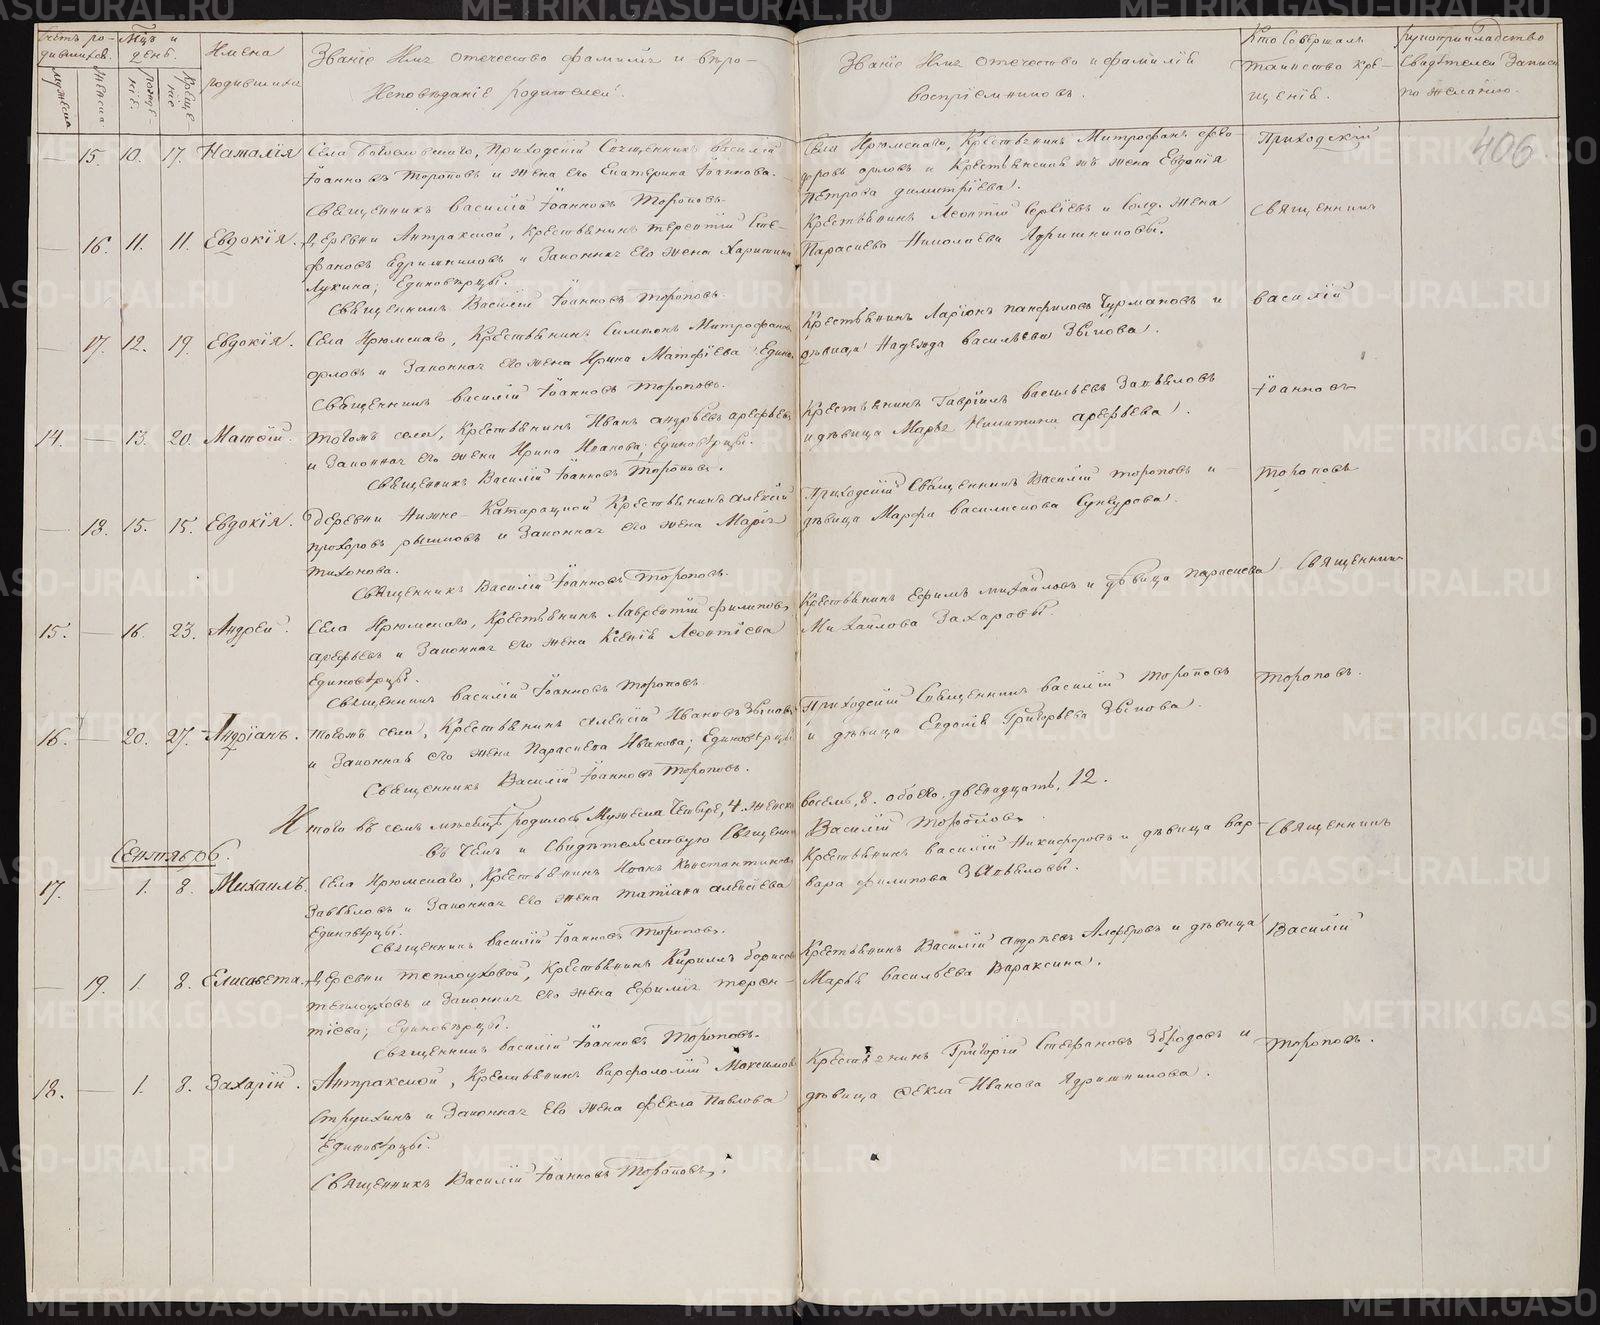 Счетъ ро-
дившихся.
Мѣс. и
день.
мужеска
женска
рожде-
нiе.
Креще-
нiе
Имена
родившихся
Званiе Имя отечество фамилiя и вѣро-
Исповѣданiе родителей.
Званiе Имя отечество и фамилiя
воспрiемниковъ.
Кто совершалъ
таинство кре-
щенiя.
рукоприкладство
Свидѣтелей Записи
по желанiю.
406
— 15. 10. 17. Наталiя
Села Богословскаго, Приходскiй Священникъ Василiй
Iоанновъ Тороповъ и жена его Екатерина Iоаннова.
Священникъ Василiй Iоанновъ Тороповъ.
Села Ирюмскаго, Крестьянинъ Митрофанъ Фео-
доровъ орловъ и Крестьянская жена Евдокiя
Петрова Димитрiева.
Приходскiй
— 16. 11. 11. Евдокiя.
Деревни Антраксмой, Крестьянинъ Терентiй Сте-
фановъ Ядришниковъ и Законная его жена Харитина
Лукина; Единовѣрцы.
Священникъ Василiй Iоанновъ Тороповъ.
Крестьянинъ Леонтiй Сергiевъ и Солд. жена
Парасковья Николаева Ядришниковы.
Священникъ
— 17. 12. 19. Евдокiя.
Села Ирюмскаго, Крестьянинъ Симеонъ Митрофановъ
орловъ и Законная его жена Ирина Матфiева Едино-
Священникъ Василiй Iоанновъ Тороповъ.
Крестьянинъ Ларiонъ Панфиловъ Чурмановъ и
дѣвица Надежда Васильева Зыкова.
Василiй
14. — 13. 20. Матѳiй.
Тогожъ села, Крестьянинъ Иванъ Андрѣевъ Арефьевъ
и Законная его жена Ирина Иванова; Единовѣрцы.
Священникъ Василiй Iоанновъ Тороповъ.
Крестьянинъ Гаврiилъ Васильевъ Завьяловъ
и дѣвица Марья Никитина Арефьева.
Iоанновъ
— 18. 15. 15. Евдокiя.
Деревни Нижне-Катарацкой Крестьянинъ Алексiй
Прохоровъ рышковъ и Законная его жена Марiя
Тихонова.
Священникъ Василiй Iоанновъ Тороповъ.
Приходскiй Священникъ Василiй Тороповъ и
дѣвица Марфа Василискова Сунгурова.
Тороповъ
15. — 16. 23. Андрей.
Села Ирюмскаго, Крестьянинъ Лаврентiй Филиповъ
Арефьевъ и Законная его жена Ксенiя Леонтiева
Единовѣрцы.
Священникъ Василiй Iоанновъ Тороповъ.
Крестьянинъ Ефимъ Михайловъ и дѣвица Парасковья
Михайлова Захаровы.
Священникъ
16. — 20. 27. Андрiанъ.
Тогожъ села, Крестьянинъ Алексiй Ивановъ Зыковъ
и Законная его жена Парасковья Иванова; Единовѣрцы
Священникъ Василiй Iоанновъ Тороповъ.
Приходскiй Священникъ Василiй Тороповъ
и дѣвица Евдокiя Григорьева Зыкова.
Тороповъ.
Итого въ семъ мѣсяцѣ родилось Мужеска Четыре, 4. женска восемь, 8. обоего двенадцать, 12.
въ Чемъ и Свидѣтельствую Священникъ Василiй Тороповъ.
Сентябрь.
17. — 1. 8. Михаилъ.
Села Ирюмскаго, Крестьянинъ Иоанъ Константиновъ
Завьяловъ и Законная его жена Татiана Алексiева
Единовѣрцы.
Священникъ Василiй Iоанновъ Тороповъ.
Крестьянинъ Василiй Никифоровъ и дѣвица Вар-
вара Филипова Завьяловы.
Священникъ
— 19. 1. 8. Елисавета.
Деревни Теплоуховой, Крестьянинъ Кириллъ Борисовъ
Теплоуховъ и Законная его жена Ефимiя Терен-
тiева; Единовѣрцы.
Священникъ Василiй Iоанновъ Тороповъ.
Крестьянинъ Василiй Андрѣевъ Алферовъ и дѣвица
Марья Васильева Вараксина.
Василiй
18. — 1. 8. Захарiй.
Антраксмой, Крестьянинъ Варфоломiй Максимовъ
Струихинъ и Законная его жена Фекла Павлова
Единовѣрцы.
Священникъ Василiй Iоанновъ Тороповъ.
Крестьянинъ Григорiй Стефановъ Збродовъ и
дѣвица Ѳекла Иванова Ядришникова.
Тороповъ.
METRIKI.GASO-URAL.RU